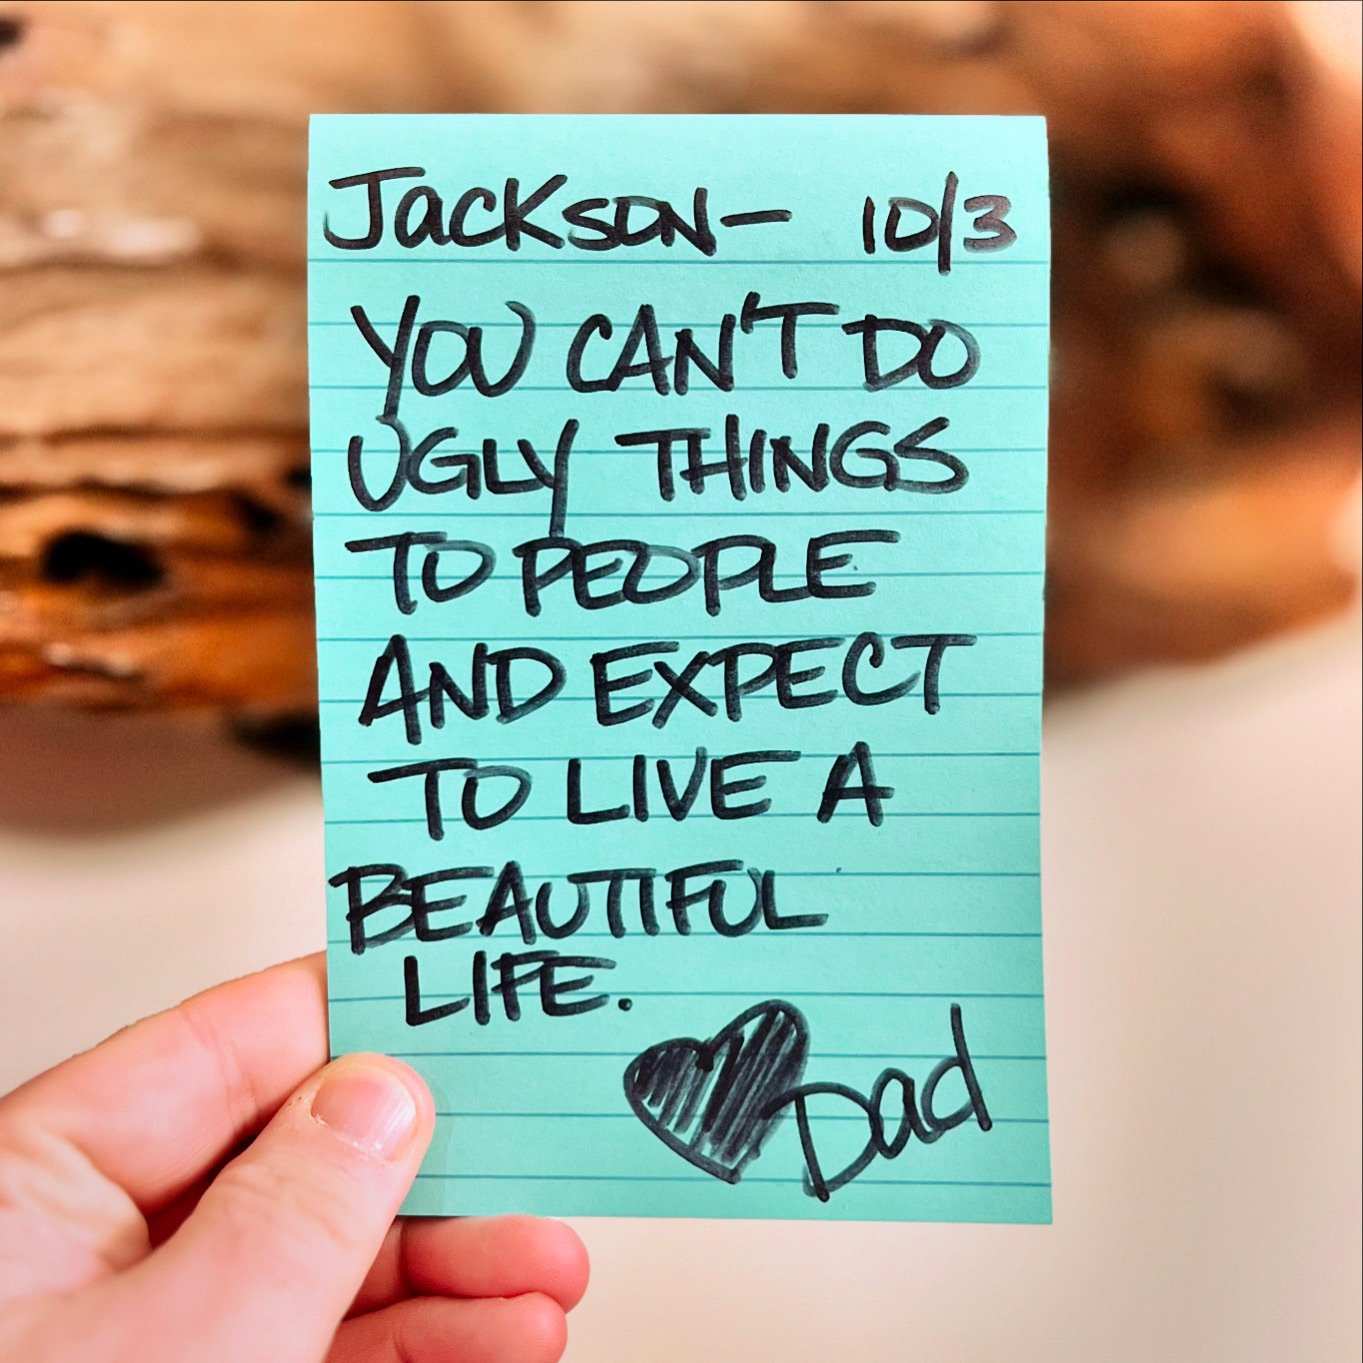 Jackson– 10/3
YOU CAN'T DO
UGLY THINGS
TO PEOPLE
AND EXPECT
TO LIVE A
BEAUTIFUL
LIFE.
Dad